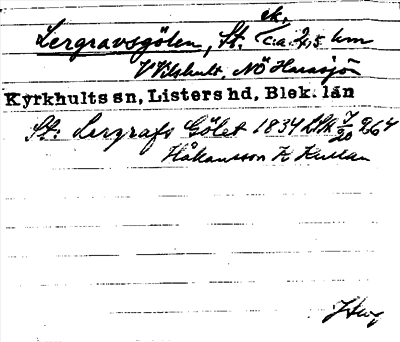 ek.
Lergravsgölen, St. c:a 2,5 km
V Vilshult, NÖ Harasjön
Kyrkhults sn, Listers hd, Blek. län
St: Lergrafs Gölet 1834 LSK 7/20 264
Håkansson K Kullan